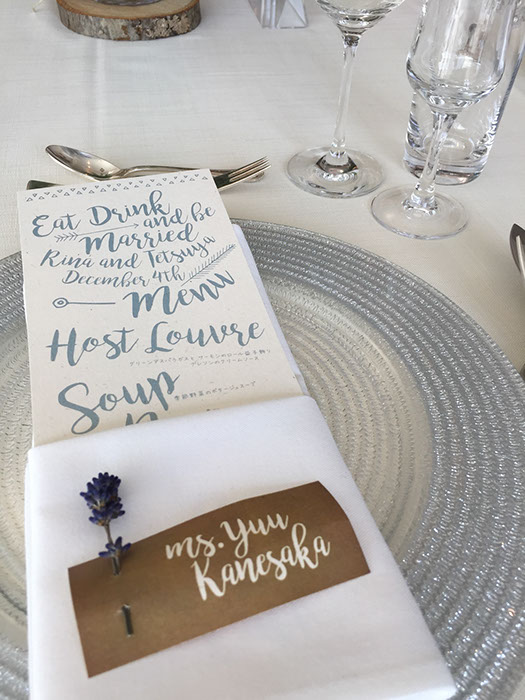 Eat Drink
and be
Married
Rina and Tetsuya
December 4th
Menu
Host Louvre
Soup
季節野菜のポタージュスープ
ms. Yuu
Kanesaka